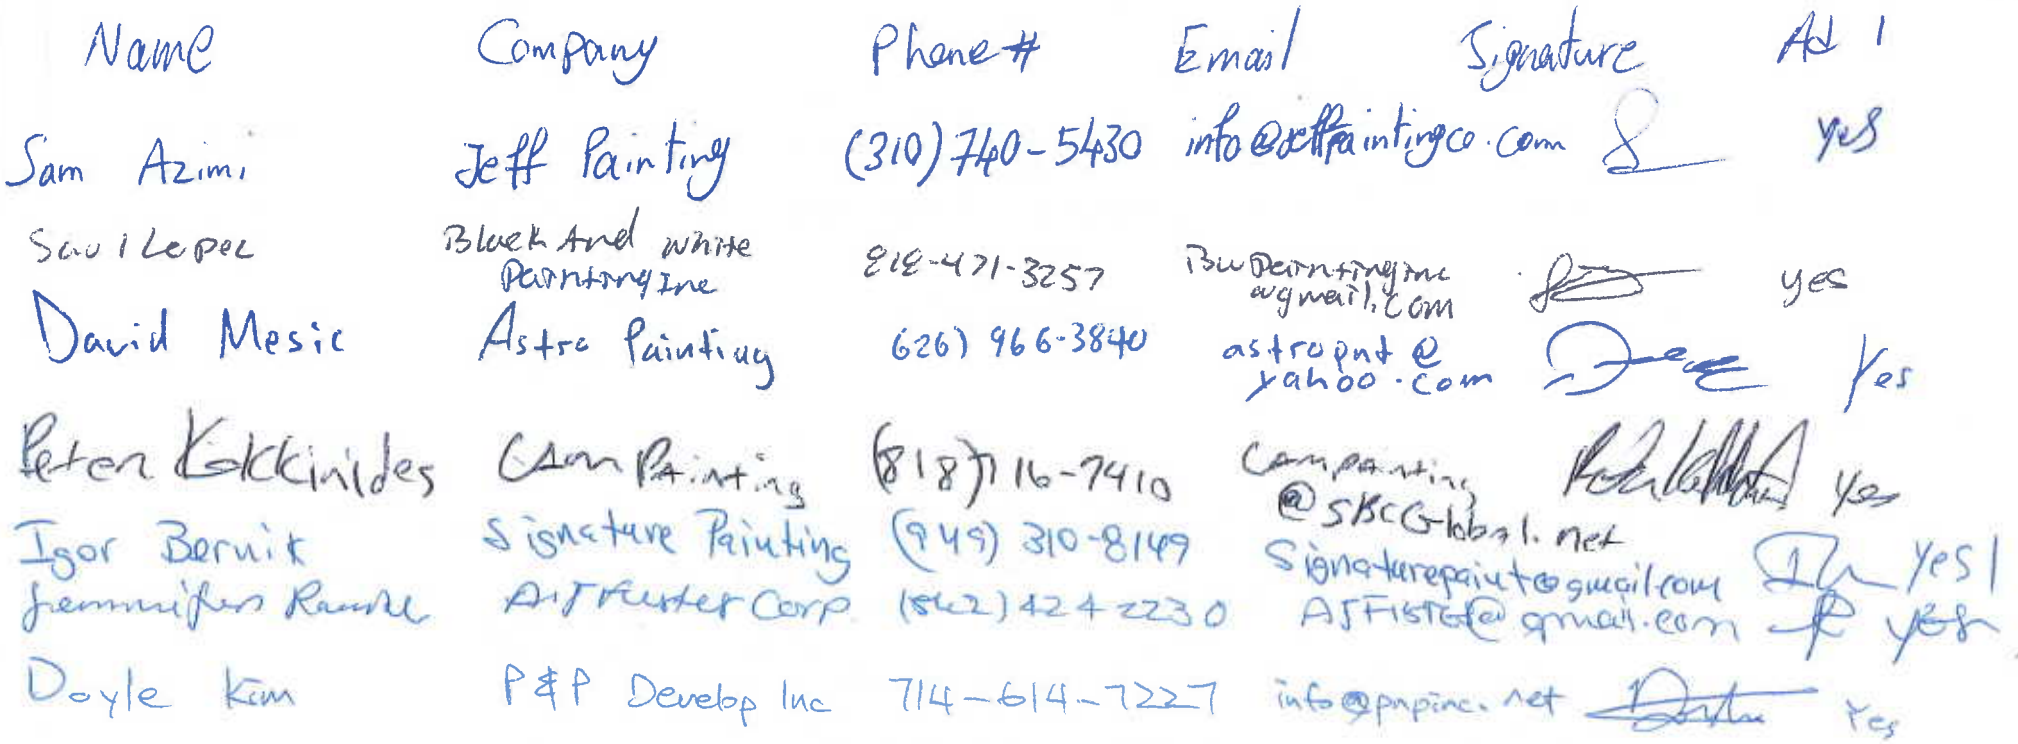 Name Company Phone # Email Signature Ad 1
Sam Azimi Jeff Painting (310) 740-5430 info@jeffpaintingco.com yes
Saul Lopez Black And White 818-471-3257 BWPaintinginc yes
Painting Inc @gmail.com
David Mesic Astro Painting 626) 966-3840 astropnt @ Yes
yahoo.com
Peter Kokkinides CAM Painting (818) 716-7410 Campainting yes
@SBCGlobal.net
Igor Bernik Signature Painting (949) 310-8149 Signaturepaint@gmail.com Yes
AJ Fister Corp. (562) 424 2230 AJFISTER@gmail.com yes
Doyle Kim P&P Develop Inc 714-614-7227 info@pnpinc.net Yes